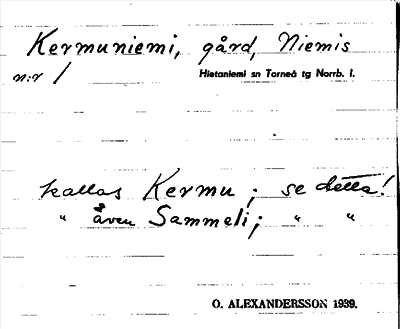 Kermuniemi, gård, Niemis
n:r 1 Hietaniemi sn Torneå tg Norrb. l.
kallas Kermu; se detta!
" även Sammeli; " "
O. ALEXANDERSSON 1939.